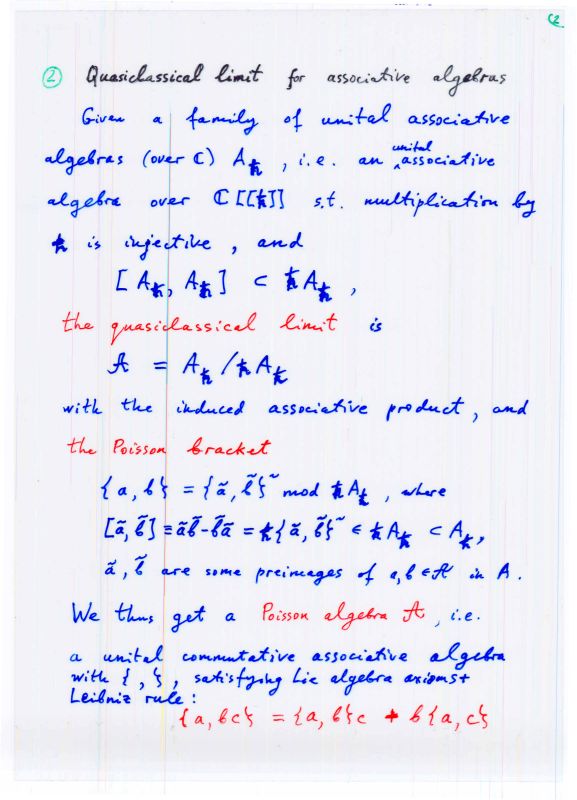 (2
② Quasiclassical limit for associative algebras
Given a family of unital associative
algebras (over ℂ) A_ħ, i.e. an unital associative
algebra over ℂ[[ħ]] s.t. multiplication by
ħ is injective, and
[A_ħ, A_ħ] ⊂ ħA_ħ,
the quasiclassical limit is
𝒜 = A_ħ/ħA_ħ
with the induced associative product, and
the Poisson bracket
{a, b} = {ã, b̃}~ mod ħA_ħ, where
[ã, b̃] ≡ ãb̃-b̃ã = ħ{ã, b̃}~ ∈ ħA_ħ ⊂ A_ħ,
ã, b̃ are some preimages of a,b ∈ 𝒜 in A.
We thus get a Poisson algebra 𝒜, i.e.
a unital commutative associative algebra
with { , }, satisfying Lie algebra axioms+
Leibniz rule:
{a, bc} = {a, b}c + b{a, c}